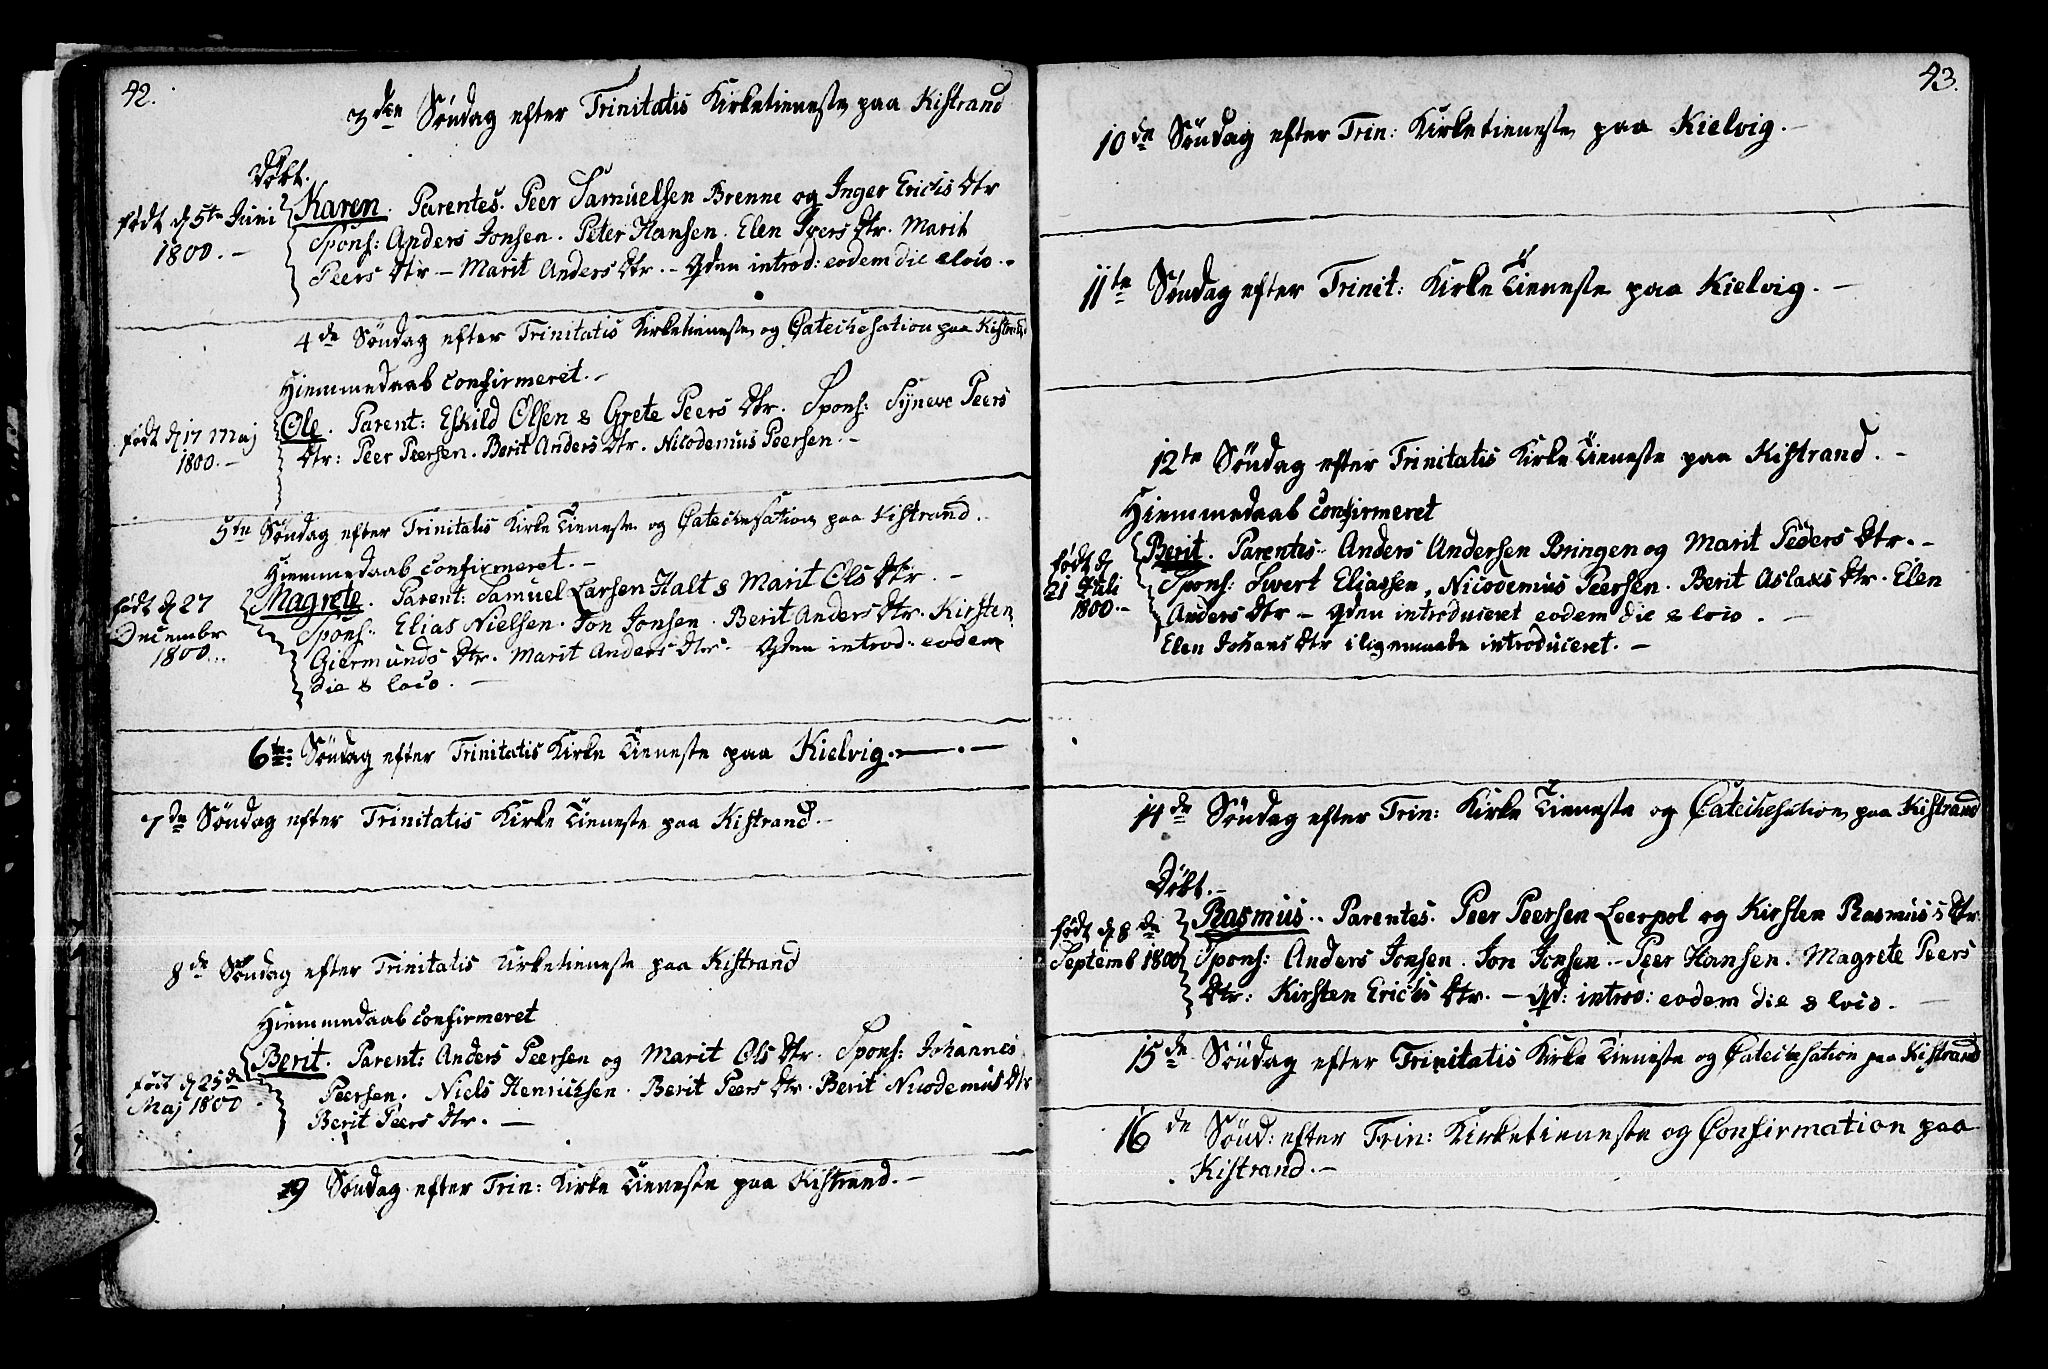 42.
3den Søndag efter Trinitatis Kirketieneste paa Kistrand
Døbt.
født d 5te Juni 1800. –
Karen. Parentes. Peer Samuelsen Brenne og Inger Erichs Dtr
Spons: Anders Jonsen. Peter Hansen. Elen Ivers Dtr. Marit
Peers Dtr – Marit Anders Dtr. – introd: eodem die & loco. –
4de Søndag efter Trinitatis Kirketieneste og Catechesation paa Kistrand
Hiemmedaab confirmeret. –
født d 17 Maj 1800. –
Ole. Parent: Eskild Olsen & Grete Peers Dtr. Spons: Syneve Peers
Dtr: Peer Peersen. Berit Anders Dtr. Nicodemus Peersen. –
5te Søndag efter Trinitatis Kirke Tieneste og Catechesation paa Kistrand.
Hiemmedaab confirmeret. –
født d 27 Decembr 1800...
Magrete. Parent: Samuel Larsen Halt & Marit Ols Dtr. –
Spons: Elias Nielsen. Jon Jonsen. Berit Anders Dtr. Kirsten
Giermunds Dtr. Marit Anders Dtr. introd: eodem
die & loco. –
6te: Søndag efter Trinitatis Kirke Tieneste paa Kielvig. – . –
7de Søndag efter Trinitatis Kirke Tieneste paa Kistrand. –
8de Søndag efter Trinitatis Kirketieneste paa Kistrand
Hiemmedaab confirmeret
født d 25de Maj 1800.
Berit. Parent: Anders Peersen og Marit Ols Dtr. Spons: Johannes
Peersen. Niels Henrichsen. Berit Peers Dtr. Berit Nicodemus Dtr
Berit Peers Dtr. –
9 Søndag efter Trin: Kirke Tieneste paa Kistrand. –
43.
10de Søndag efter Trin: Kirketieneste paa Kielvig. –
11te Søndag efter Trinit: Kirke Tieneste paa Kielvig. –
12te Søndag efter Trinitatis Kirke Tieneste paa Kistrand. –
Hiemmedaab confirmeret
født d 21 Juli 1800. –
Berit. Parentes: Anders Andersen Bringen og Marit Peders Dtr. –
Spons: Sivert Eliassen, Nicodemus Peersen. Berit Aslaks Dtr. Elen
Anders Dtr – introduceret eodem die & loco. –
Elen Johans Dtr iligemaade introduceret. –
14de Søndag efter Trin: Kirke Tieneste og Catechesation paa Kistrand
Døbt. –
født d 8de Septemb 1800
Rasmus. Parentes. Peer Peersen Leerpol og Kirsten Rasmus's Dtr.
Spons: Anders Jonsen. Jon Jonsen. – Peer Hansen. Magrete Peers
Dtr: Kirsten Erichs Dtr. – introd: eodem die & loco. –
15de Søndag efter Trinitatis Kirke Tieneste og Catechesation paa Kistrand
16de Sønd: efter Trin: Kirketieneste og Confirmation paa
Kistrand. –